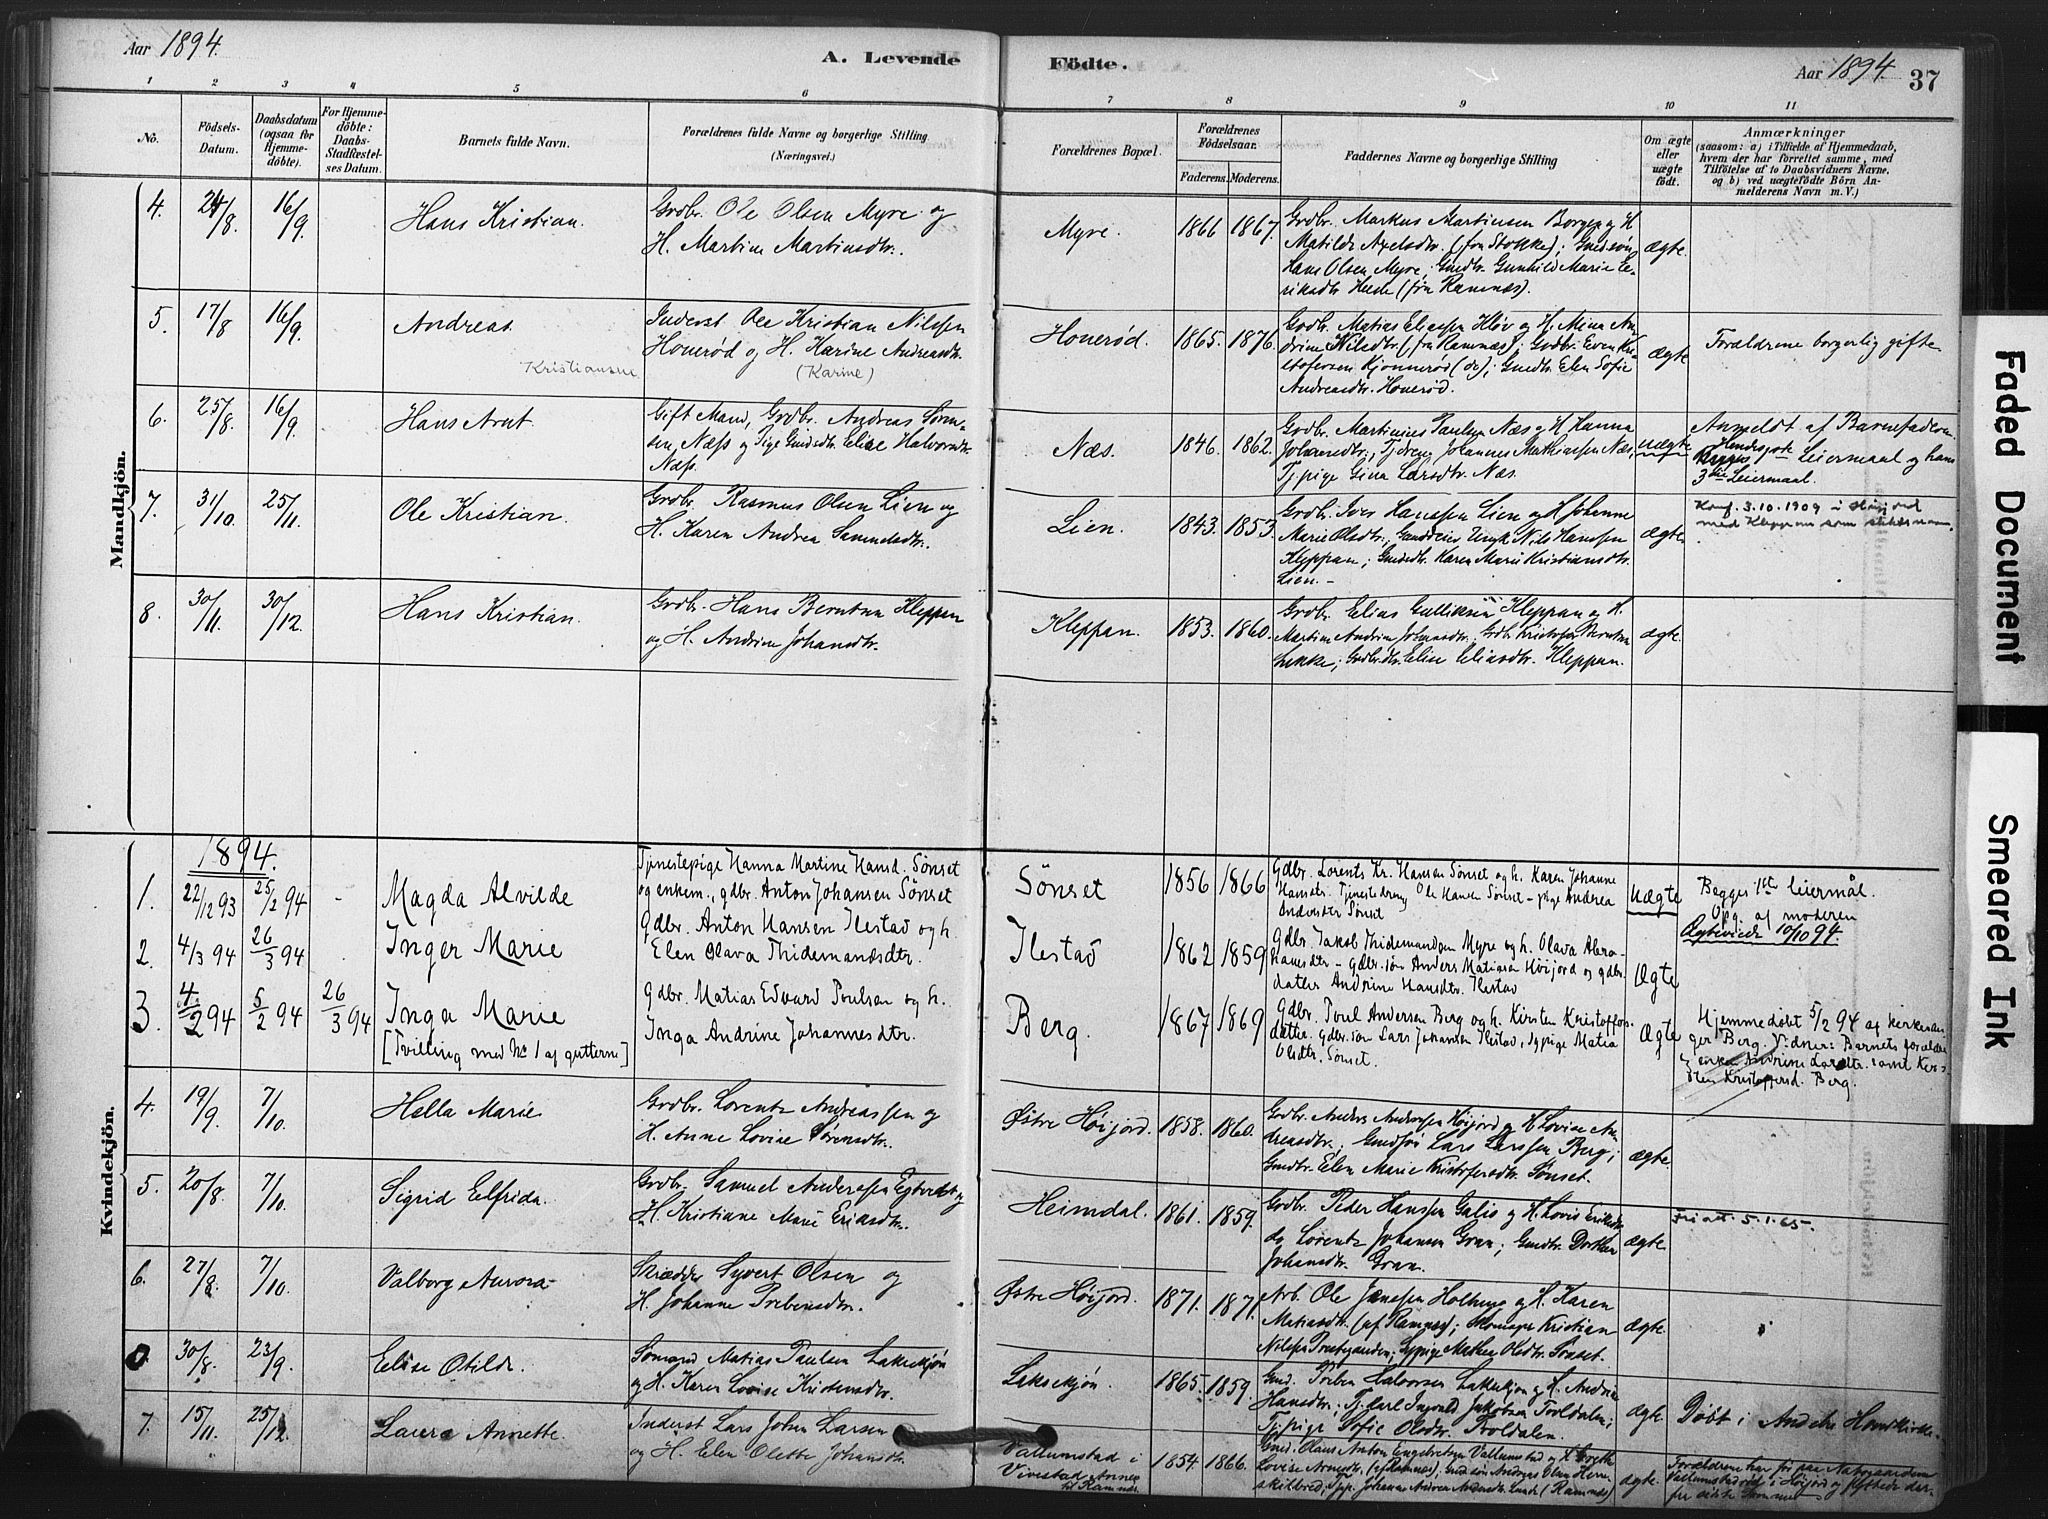 Aar 1894.
A. Levende Födte.
Aar 1894.
37
1 2 3 4 5 6 7 8 9 10 11
No.
Födsels-Datum.
Daabsdatum (ogsaa for Hjemmedöbte).
For Hjemmedöbte: Daabs-Stadfæstelses Datum.
Barnets fulde Navn.
Forældrenes fulde Navne og borgerlige Stilling (Næringsvei.)
Forældrenes Bopæl.
Forældrenes Födselsaar.
Faderens. Moderens.
Faddernes Navne og borgerlige Stilling
Om ægte eller uægte födt.
Anmærkninger
(saasom: a) i Tilfælde af Hjemmedaab, hvem der har forrettet samme, med Tilföielse af to Daabsvidners Navne, og b) ved uægtefödte Börn Anmelderens Navn m. V.)
Mandkjön.
4. 24/8 16/9 Hans Kristian.
Grdbr. Ole Olsen Myre og
H. Martine Martinsdtr.
Myre. 1866 1867.
Grdbr. Markus Martinsen Borge og H.
Matilde Axelsdtr. (fra Stokke); Gmdsøn
Hans Olsen Myre; Gmdtr. Gunhild Marie E-
riksdtr. (fra Ramnæs).
ægte.
5. 17/8 16/9 Andreas.
Inderst Ole Kristian Nilssen
Honerød og H. Karine Andreasdtr.
Kristiansen (Karine)
Honerød. 1865. 1876.
Grdbr. Matias Eliassen Kløv og H. Mina An-
drine Nilsdtr. (fra Ramnæs); Grdbr. Even Kri-
stofersen Kjønnerød (do); Gmdtr. Elen Sofie
Andreasdtr. Honerød.
ægte
Forældrene borgerlig gifte.
6. 25/8 16/9 Hans Arnt.
Gift Mand, Grdbr. Andreas Søren-
sen Næss og Pige Gmdsdtr. Elise Halvorsdtr.
Næss.
Næs. 1846. 1862.
Grdbr. Martinius Paulsen Næs og H. Hanna
Johansdtr.; Tjdreng Johannes Mathiassen Næs,
Tjpige Gina Larsdtr. Næs.
uægte
Anmeldt af Barnefaderen.
Hendes Leiermaal og hans
3die Leiermaal.
7. 31/10 25/11 Ole Kristian.
Grdbr. Rasmus Olsen Lien og
H. Karen Andrea Samuelsdtr.
Lien. 1843. 1853.
Grdbr. Iver Hanssen Lien og H. Johanne
Marie Olsdtr.; Nils Hanssen
Kleppan; Gmdsdtr. Karen Marie Kristiansdtr.
Lien.-
ægte.
Konf. 3.10.1909 i Høijord
med Kleppan som slektsnavn.
8. 30/11 30/12 Hans Kristian.
Grdbr. Hans Berntsen Kleppan
og H. Andrine Johansdtr.
Kleppan. 1853. 1860.
Grdbr. Elias Gulliksen Kleppan og H.
Martine Andrine Johansdtr.; Grdb. Kristofer Berntsen
Lukke; Grdbrdtr. Elise Eliasdtr. Kleppan.
ægte.
Kvindekjön.
1894.
1. 22/12 93 25/2 94 - Magda Alvilde
Tjenestepige Hanna Martine Hansd. Sönset
og enkem., gdbr. Anton Johansen Sönset
Sönset 1856 1866
Gdbr. Lorents Kr. Hansen Sönset og h. Karen Johanne
Hansdtr. Tjenestedreng Ole Hansen Sönset - pige Andrea
Andersdtr Sönset
Uægte
Begges 1ste leiermål.
Opg. af moderen
Ægteviede 10/10 94.
2. 4/3 94 26/3 94 Inger Marie
Gdbr. Anton Hansen Ilestad og h.
Elen Olava Thidemandsdtr.
Ilestad 1862 1859
Gdbr. Jakob Thidemandsen Myre og h. Olava Abra-
hamsdtr - Gdbr. søn Anders Matiasen Höijord og gdbr.
datter Andrine Hansdtr. Ilestad
Ægte
3. 4/2 94 5/2 94 26/3 94 Inga Marie
[Tvilling med No 1 af gutterne]
Gdbr. Matias Edvard Poulsen og h.
Inga Andrine Johannesdtr.
Berg. 1867 1869
Gdbr. Poul Andersen Berg og h. Kirsten Kristoffers-
datter. Gdbr. søn Lars Johansen Ilestad, Tjpige Matia
Olsdtr. Sönset.
Ægte
Hjemmedöbt 5/2 94 af kirkesan-
ger Berg. Vidner: Barnets forældre
enken Andrine Larsdtr. samt Kir-
sten Kristoffersd. Berg.
4. 19/9 7/10. Hella Marie
Grdbr. Lorentz Andreassen og
H. Anne Lovise Sørensdtr.
Østre Höijord. 1858. 1860.
Grdbr. Anders Andersen Höijord og H. Lovise An-
dreasdtr.; Gmdsøn Lars Larssen Berg;
Gmdtr. Elen Marie Kristofersdtr. Sønset.
ægte.
5. 20/8 7/10. Sigrid Elfrida.
Grdbr. Samuel Anderssen og
H. Kristiane Marie Eriksdtr.
Heimdal. 1861. 1859.
Grdbr. Peder Hanssen Galis og H. Lovis Eriksdtr.
do Lorentz Johansen Gran; Gmdtr. Dorthea
Johansdtr. Gran.
ægte.
5.1.65.
6. 27/8 7/10 Valborg Aurora
Skrædder Syvert Olsen og
H. Johanne Prebensdtr.
Østre Höijord. 1871. 1871.
Arb. Ole Jensen Holtung og H. Karen
Matiasdtr. (af Ramnæs); Skomager Kristian
Nilssen Prestegaarden; Tjpige Mathea Olsdtr. Sønset.
ægte.
30/8. 23/9. Elise Otilde.
Sømand Matias Paulsen Lakskjøn
og H. Karen Lovise Kristensdtr.
Lakskjøn. 1865. 1859.
Gmd. Preben Halvorsen Lakskjøn og H. Andrine
Hansdtr.; Tj. karl Ingvald Jakobsen Troldalen;
Tjpige Sofie Olsdtr. Troldalen.
ægte.
Döbt i Andebu Hovedkirke.
7. 15/11. 25/12 Laura Annette.
Inderst Lars Johan Larsen
og H. Elen Olette Johansdtr.
Vallumstad i
Vivestad Annex
til Ramnæs. 1854. 1866.
Gmd. Olaus Anton Engebretsen Vallumstad og H. Grethe
Lovise Arnesdtr. (af Ramnæs); Gmdsøn Andreas Olsen Herm-
skilbred; Tjp. Johanne Andrea Andersdtr. Lunde (Ramnæs)
ægte.
Forældrene har før paa Nabogaarden
Vallumstadrød i Höijord og flyttede der-
fra sidste Sommer
Faded Document
Smeared Ink